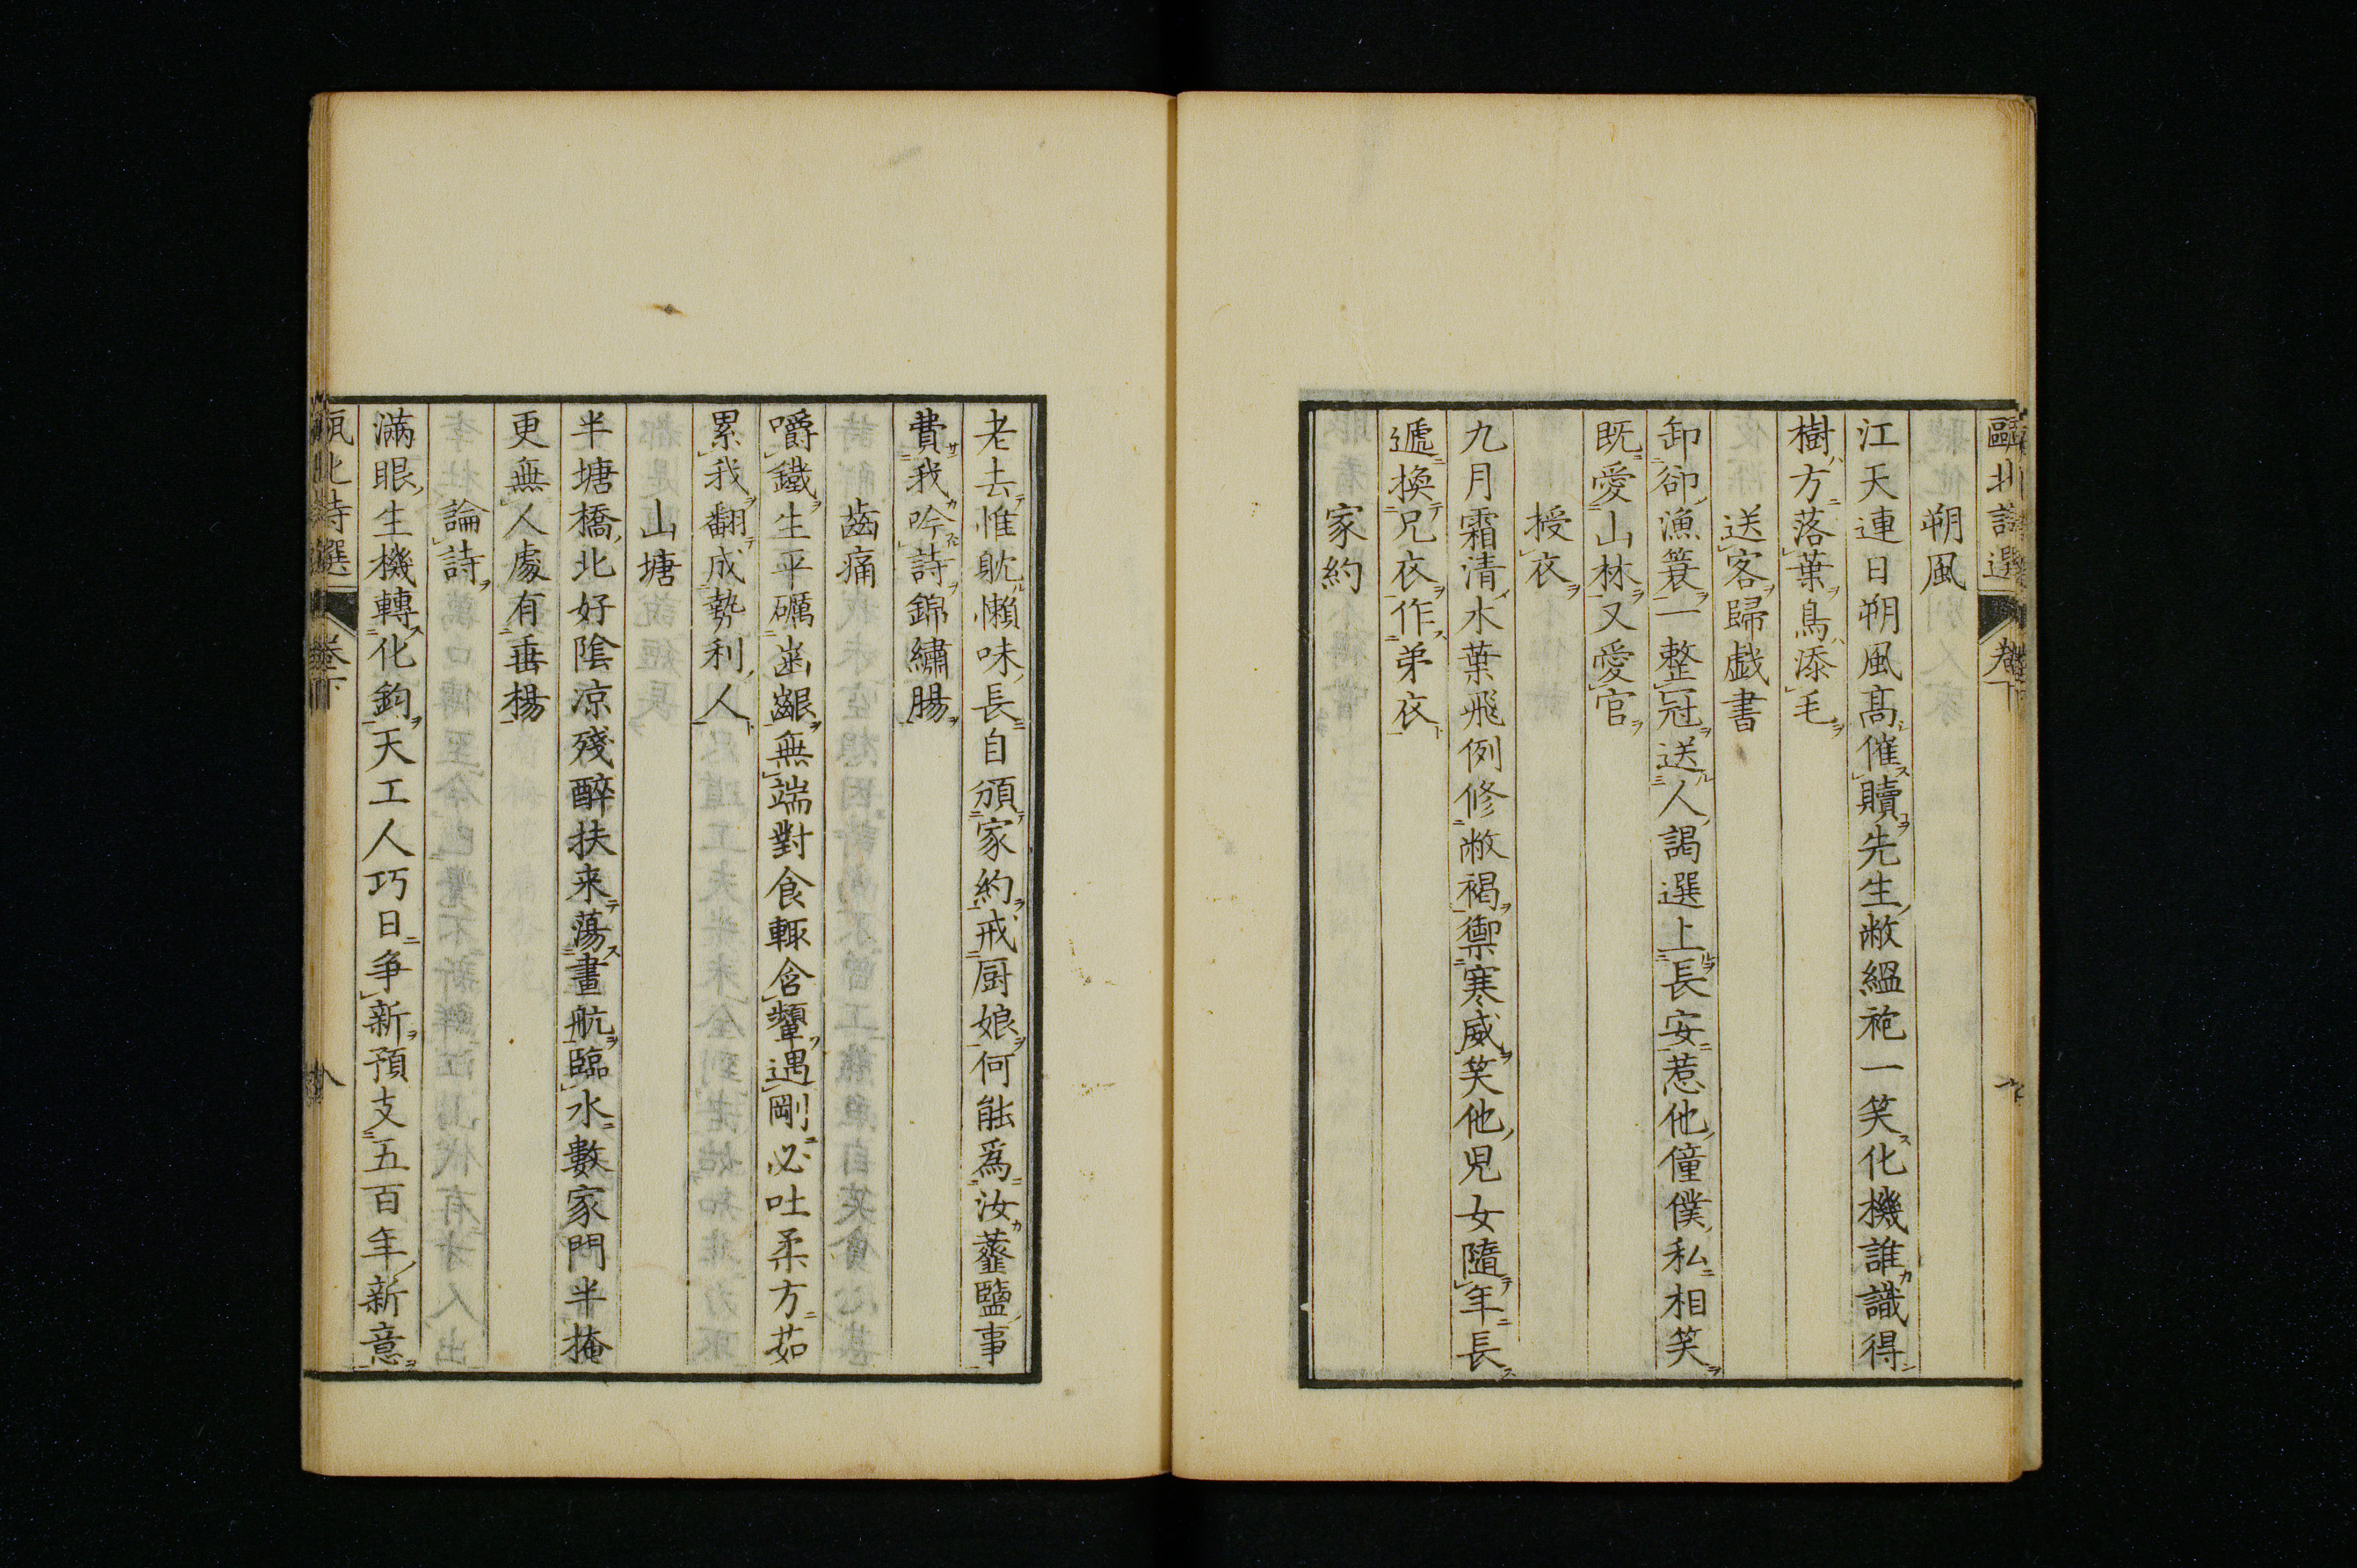 甌北詩選 卷下
朔風
江天連日朔風髙催贖先生敝緼袍一笑化機誰識得
樹方落葉鳥添毛
送客歸戯書
卸卻漁簑一整冠送人謁選上長安惹他僮僕私相笑
既愛山林又愛官
授衣
九月霜清木葉飛例修敝褐禦寒威笑他児女隨年長
遞換兄衣作弟衣
家約
老去惟躭懶味長自頒家約戒厨娘何能爲汝虀鹽事
費我吟詩錦繡腸
齒痛
嚼鐵生平礪齒齦無端對食輙含顰遇剛必吐柔方茹
累我翻成勢利人
山塘
半塘橋北好陰凉殘醉扶来蕩畫航臨水數家門半掩
更無人處有垂楊
論詩
滿眼生機轉化鈞天工人巧日争新預支五百年新意
甌北詩選 卷下 八